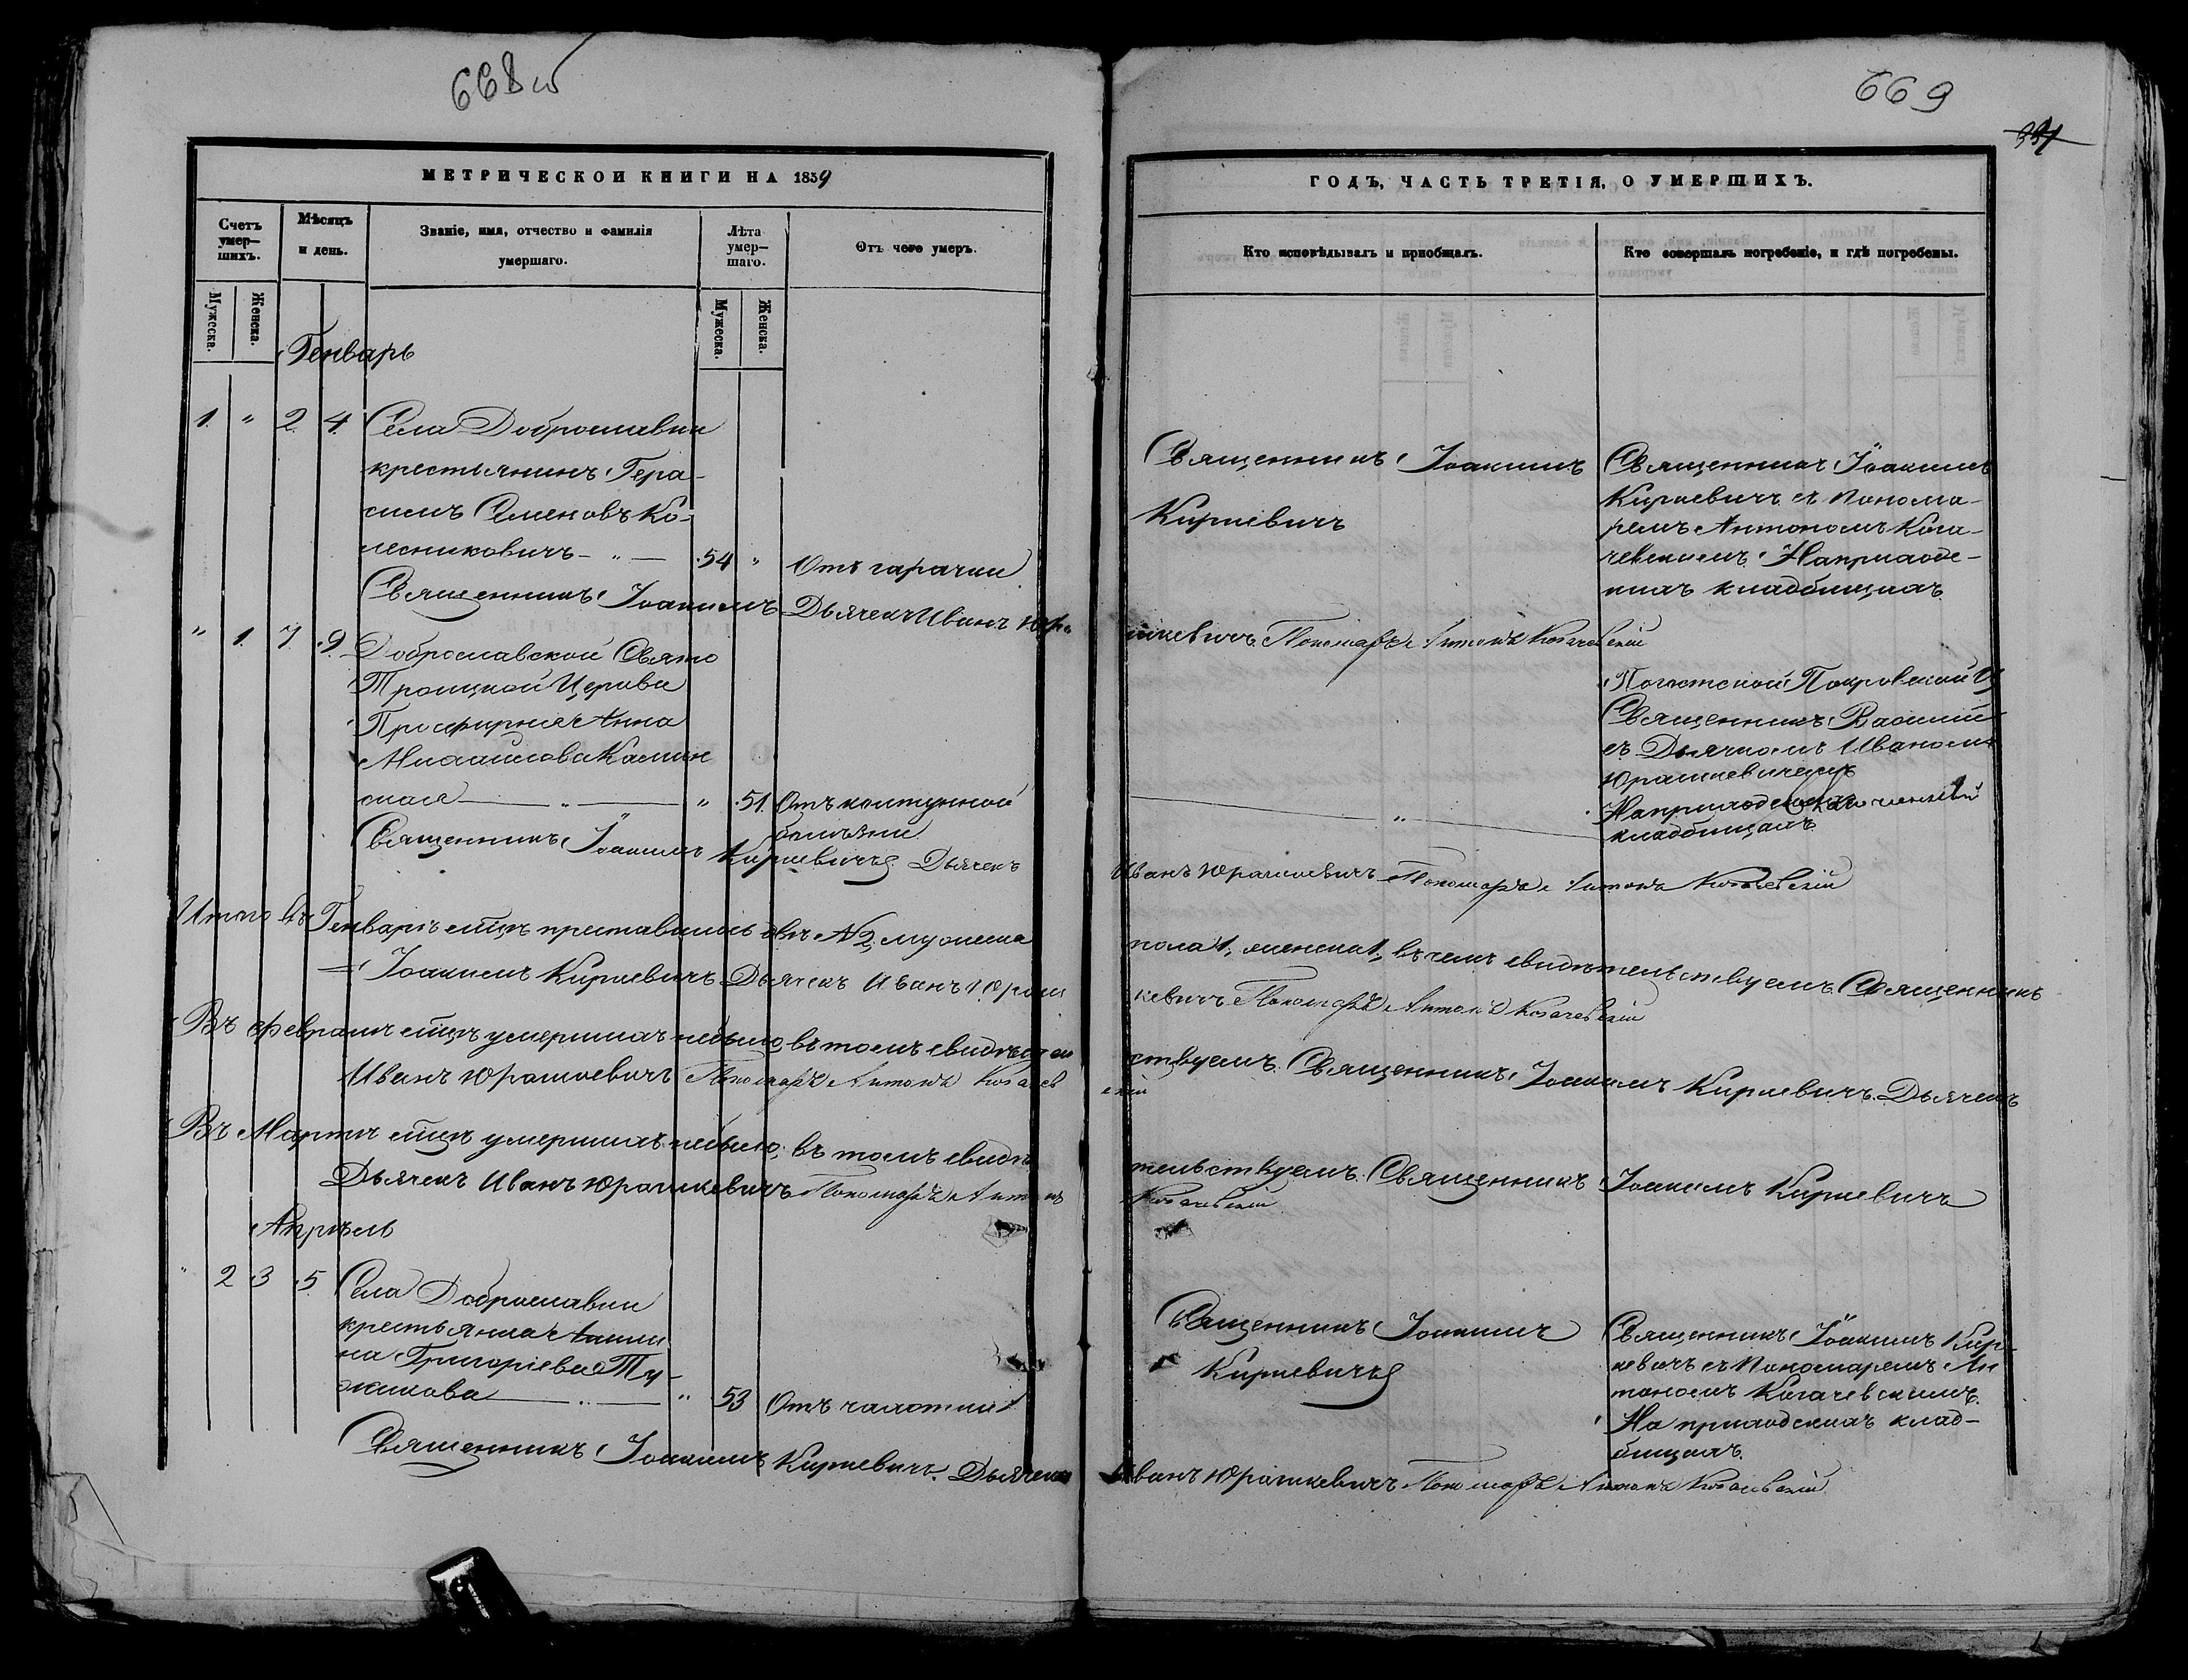 668 об
669
331
МЕТРИЧЕСКОЙ КНИГИ НА 1859
ГОДЪ, ЧАСТЬ ТРЕТІЯ, О УМЕРШИХЪ.
Счетъ умер—шихъ.
Мѣсяцъ и день.
Званіе, имя, отчество и фамилія умершаго.
Лѣта умер—шаго.
Отъ чего умеръ.
Кто исповѣдывалъ и пріобщалъ.
Кто совершалъ погребеніе, и гдѣ погребены.
Мужеска.
Женска.
Мужеска.
Женска.
Генварь
1. " 2. 4. Села Доброславки
крестьянинъ Гера-
симъ Семеновъ Ко-
лесниковичъ — " — 54 " Отъ гарачки
Священникъ Іоакимъ
Киркевичъ
Священникъ Іоакимъ
Киркевичъ съ Понома-
ремъ Антономъ Кога-
чевскимъ На приходс-
кихъ кладбищахъ
Священникъ Іоакимъ Дьячекъ Иванъ Юра
шкевичъ Пономарь Антонъ Когачевскій
" 1. 7. 9. Доброславской Свято
Троицкой Церкви
Просфирня Анна
Михайлова Камин
ская — " — " 51. Отъ колтунной
болѣзни
— " —
Погостской Покровской Ц
Священникъ Василій
съ Дьячкомъ Иваномъ
Юрашкевичемъ
На приходскихъ
кладбищахъ
Священникъ Іоакимъ Киркевичъ Дьячекъ
Иванъ Юрашкевичъ Пономарь Антонъ Когачевскій
Итого въ Генварѣ мцѣ преставилось двѣ № 2, мужеска
пола 1, женска 1, въ чемъ свидѣтельствуемъ Священникъ
Іоакимъ Киркевичъ Дьячекъ Иванъ Юраш
кевичъ Пономарь Антонъ Когачевскій
Въ Февралѣ мцѣ умершихъ небыло, въ томъ свидѣтель
ствуемъ. Священникъ Іоакимъ Киркевичъ. Дьячекъ
Иванъ Юрашкевичъ Пономарь Антонъ Когачев
скій
Въ Мартѣ мцѣ умершихъ небыло, въ томъ свидѣ
тельствуемъ. Священникъ Іоакимъ Киркевичъ
Дьячекъ Иванъ Юрашкевичъ Пономарь Антонъ
Когачевскій
Апрѣль
" 2 3 5. Села Доброславки
крестьянка
на Григоріева Ту-
жикова — " — " 53 Отъ чахотки
Священникъ Іоакимъ
Киркевичъ
Священникъ Іоакимъ Кир-
кевичъ съ Пономаремъ Ан
тономъ Когачевскимъ.
На приходскихъ клад-
бищахъ.
Священникъ Іоакимъ Киркевичъ. Дьячекъ
Иванъ Юрашкевичъ Пономарь Антонъ Когачевскій